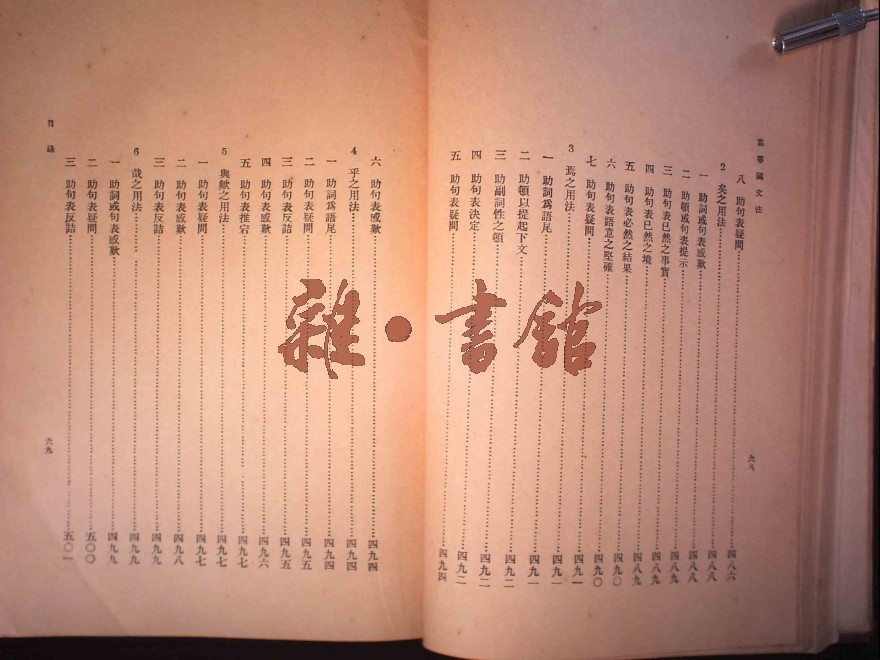 高等國文法
八 助句表疑問……四八六
2 矣之用法……四八八
一 助詞或句表感歎……四八八
二 助頓或句表提示……四八八
三 助句表已然之事實……四八九
四 助句表已然之境……四八九
五 助句表必然之結果……四八九
六 助句表語意之堅確……四九〇
七 助句表疑問……四九〇
3 焉之用法……四九一
一 助詞爲語尾……四九一
二 助頓以提起下文……四九一
三 助副詞性之頓……四九二
四 助句表決定……四九二
五 助句表疑問……四九四
六八
目錄
六 助句表感歎……四九四
4 乎之用法……四九四
一 助詞爲語尾……四九四
二 助句表疑問……四九五
三 助句表反詰……四九五
四 助句表感歎……四九六
五 助句表推宕……四九七
5 與歟之用法……四九七
一 助句表疑問……四九七
二 助句表感歎……四九八
三 助句表反詰……四九九
6 哉之用法……四九九
一 助詞或句表感歎……四九九
二 助句表疑問……五〇〇
三 助句表反詰……五〇一
六九
雜·書館